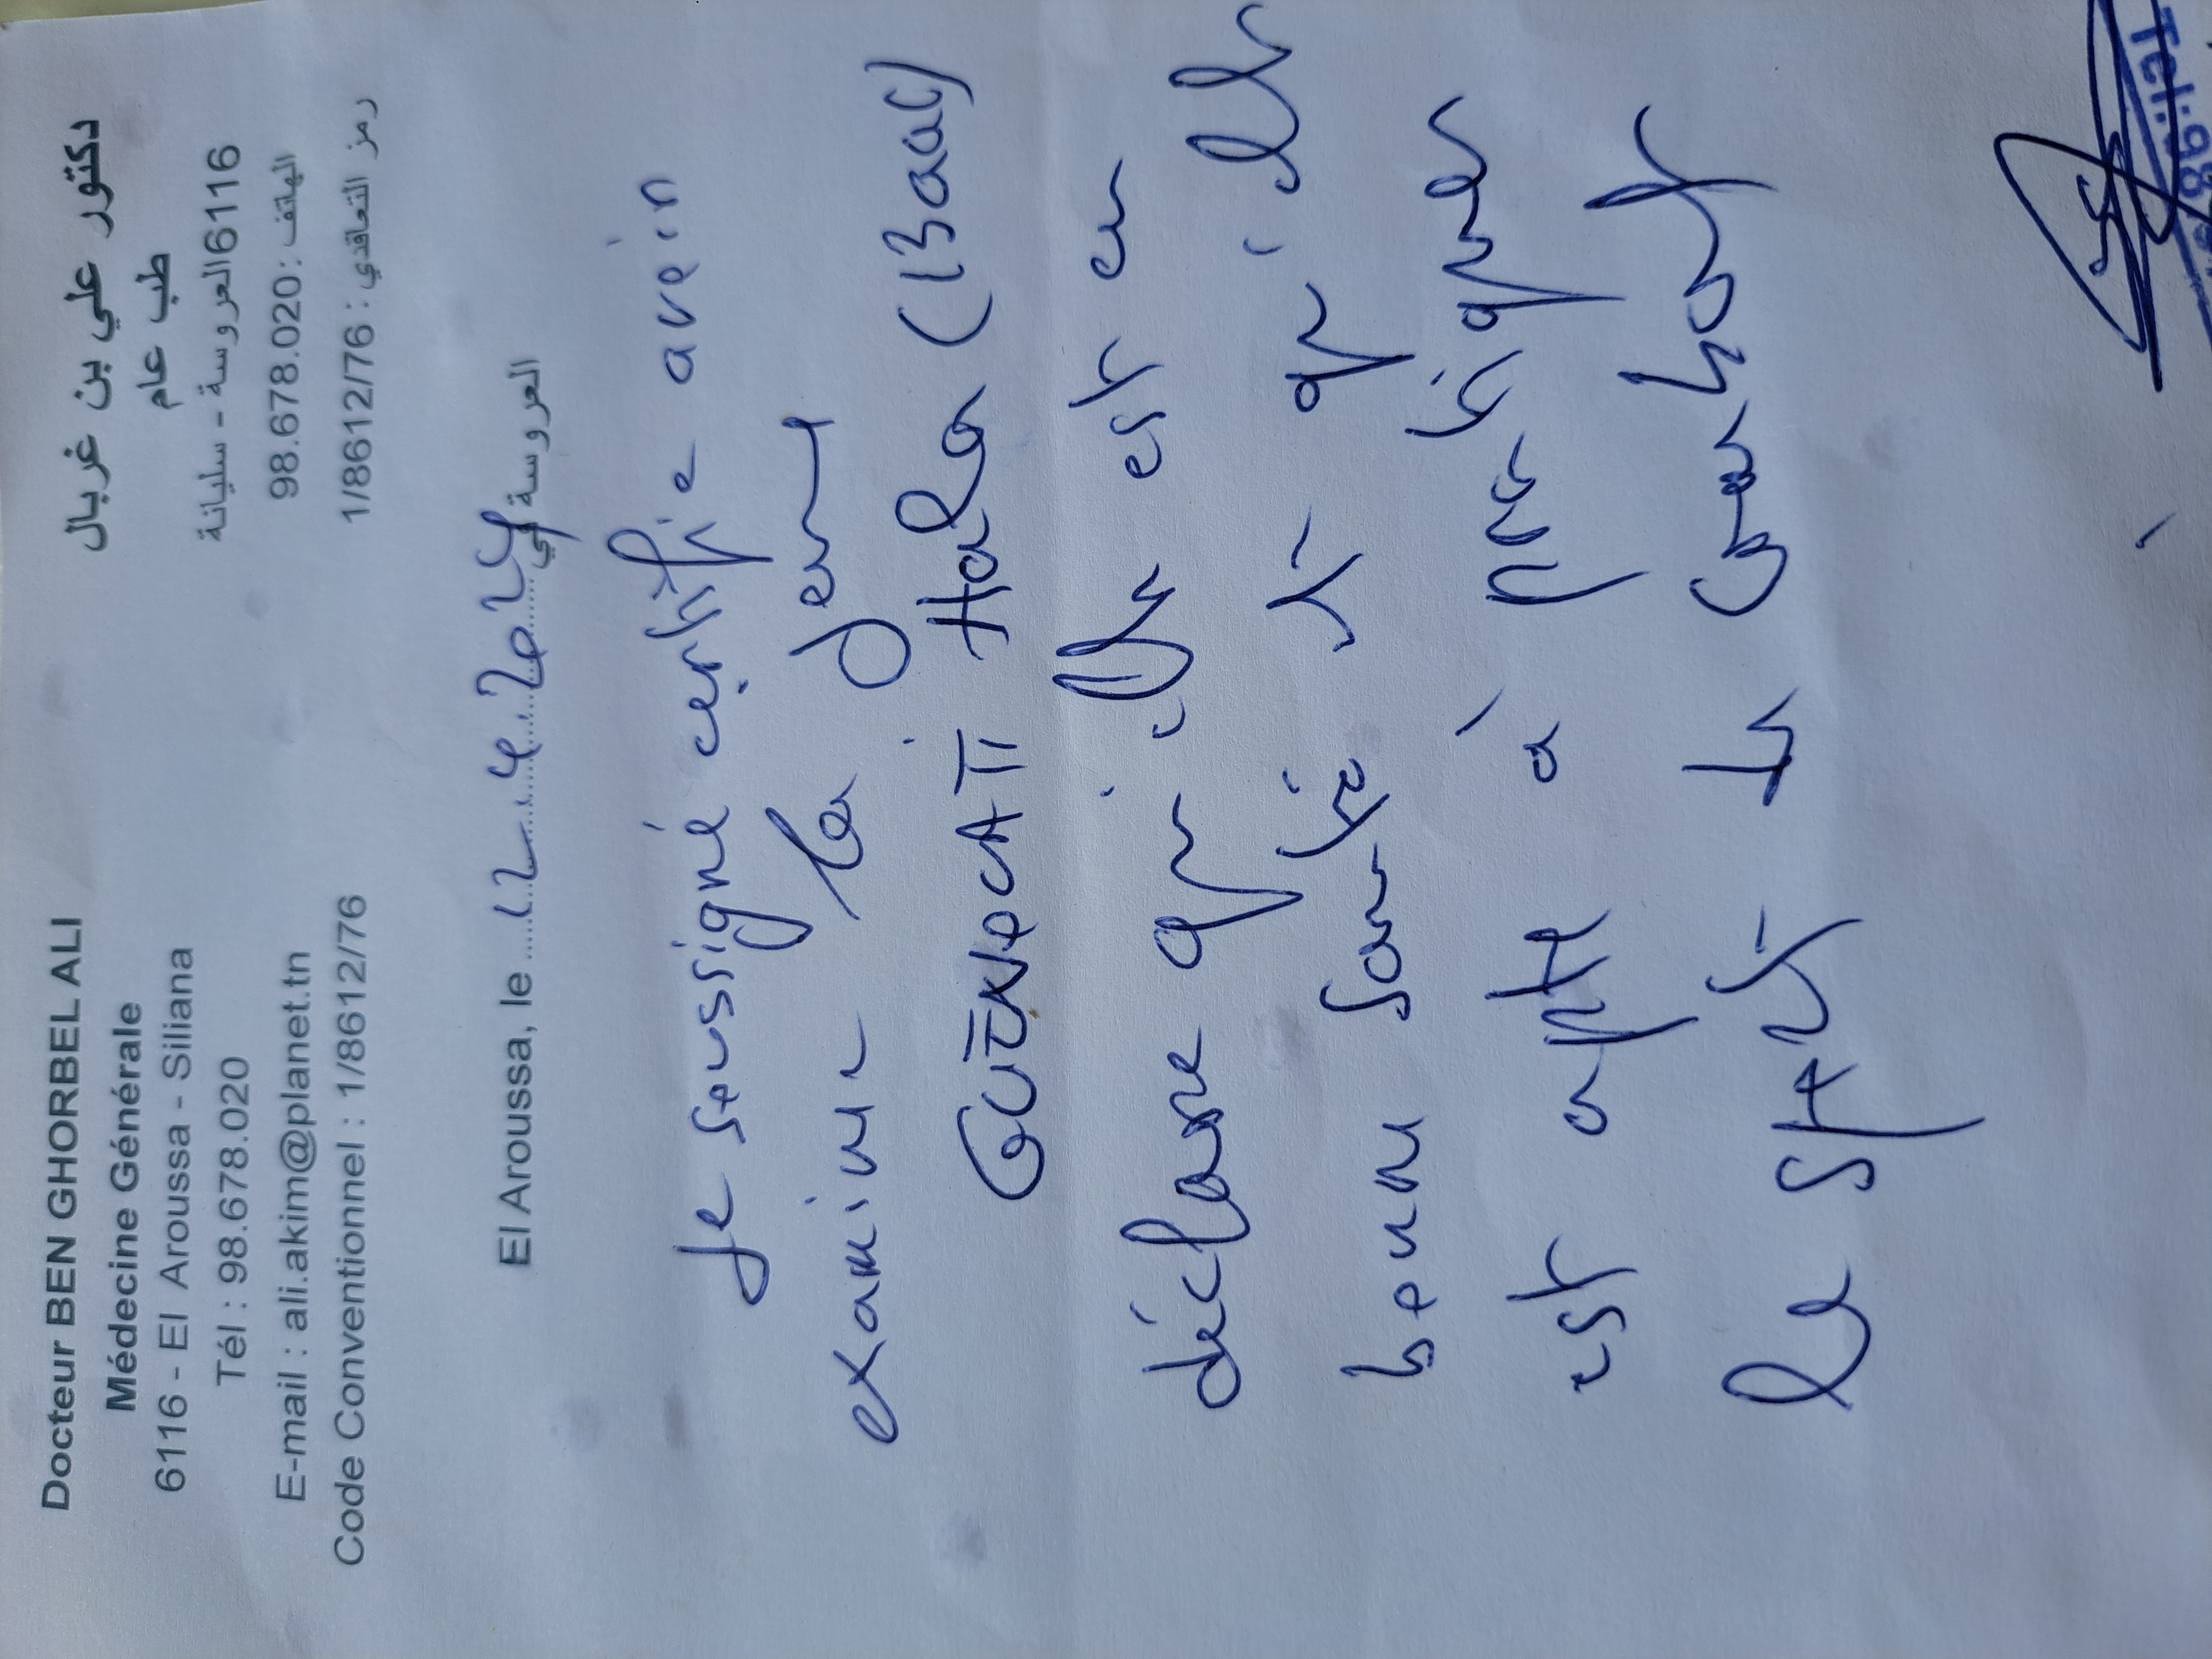 Docteur BEN GHORBEL ALI
Médecine Générale
6116 - El Aroussa - Siliana
Tél : 98.678.020
E-mail : ali.akim@planet.tn
Code Conventionnel : 1/8612/76
دكتور علي بن غربال
طب عام
6116العروسة - سليانة
الهاتف : 98.678.020
رمز التعاقدي : 1/8612/76
El Aroussa, le 12.4.2024 العروسة في
Je soussigné certifie avoir
examiner la jeune
Hala (13 ans)
déclare qu'elle est en
bonne santé et qu'elle
est apte à pratiquer
le de combat
Tel:98